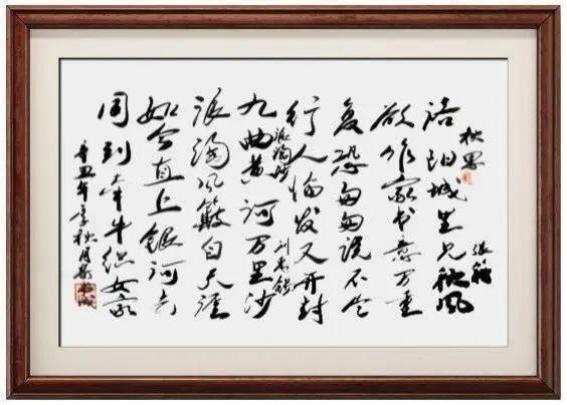 秋思
张籍
洛阳城里见秋风
欲作家书意万重
复恐匆匆说不尽
行人临发又开封
浪淘沙
刘禹锡
九曲黄河万里沙
浪淘风簸自天涯
如今直上银河去
同到牵牛织女家
辛丑年